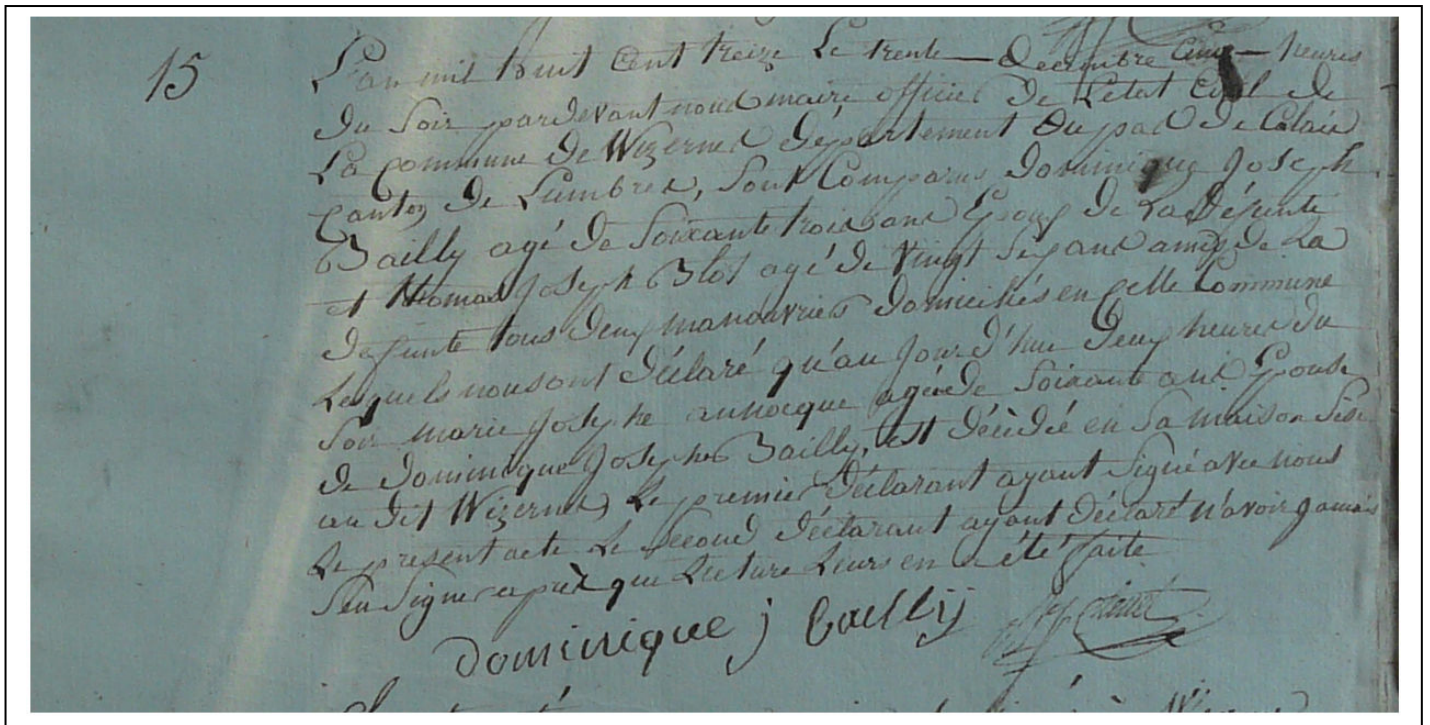 15
L'an mil huit Cent treize Le trente — decembre Cinq — heures
du Soir pardevant nous maire officier De Letat Civil de
La Commune De Wizernes département Du pas De Calais
Canton De Lumbres, Sont Comparus Dominique Joseph
Bailly agé De Soixante trois ans Epoux De La Défunte
et thomas Joseph Blot agé De Vingt Six ans amis De La
Defunte tous Deux manouvriers Domiciliés en Cette Commune
Lesquels nous ont Déclaré qu'au Jour d'hui Deux heures du
Soir marie Josephe annocque agée De Soixante ans Epouse
De Dominique Joseph Bailly, est décédée en Sa maison Sise
au Dit Wizernes, Le premier Déclarant ayant Signé avec nous
Le present acte Le Second Déclarant ayant Déclaré n'avoir Jamais
Sçu Signer apres que Lecture Leurs en a été faite
Dominique j baillij